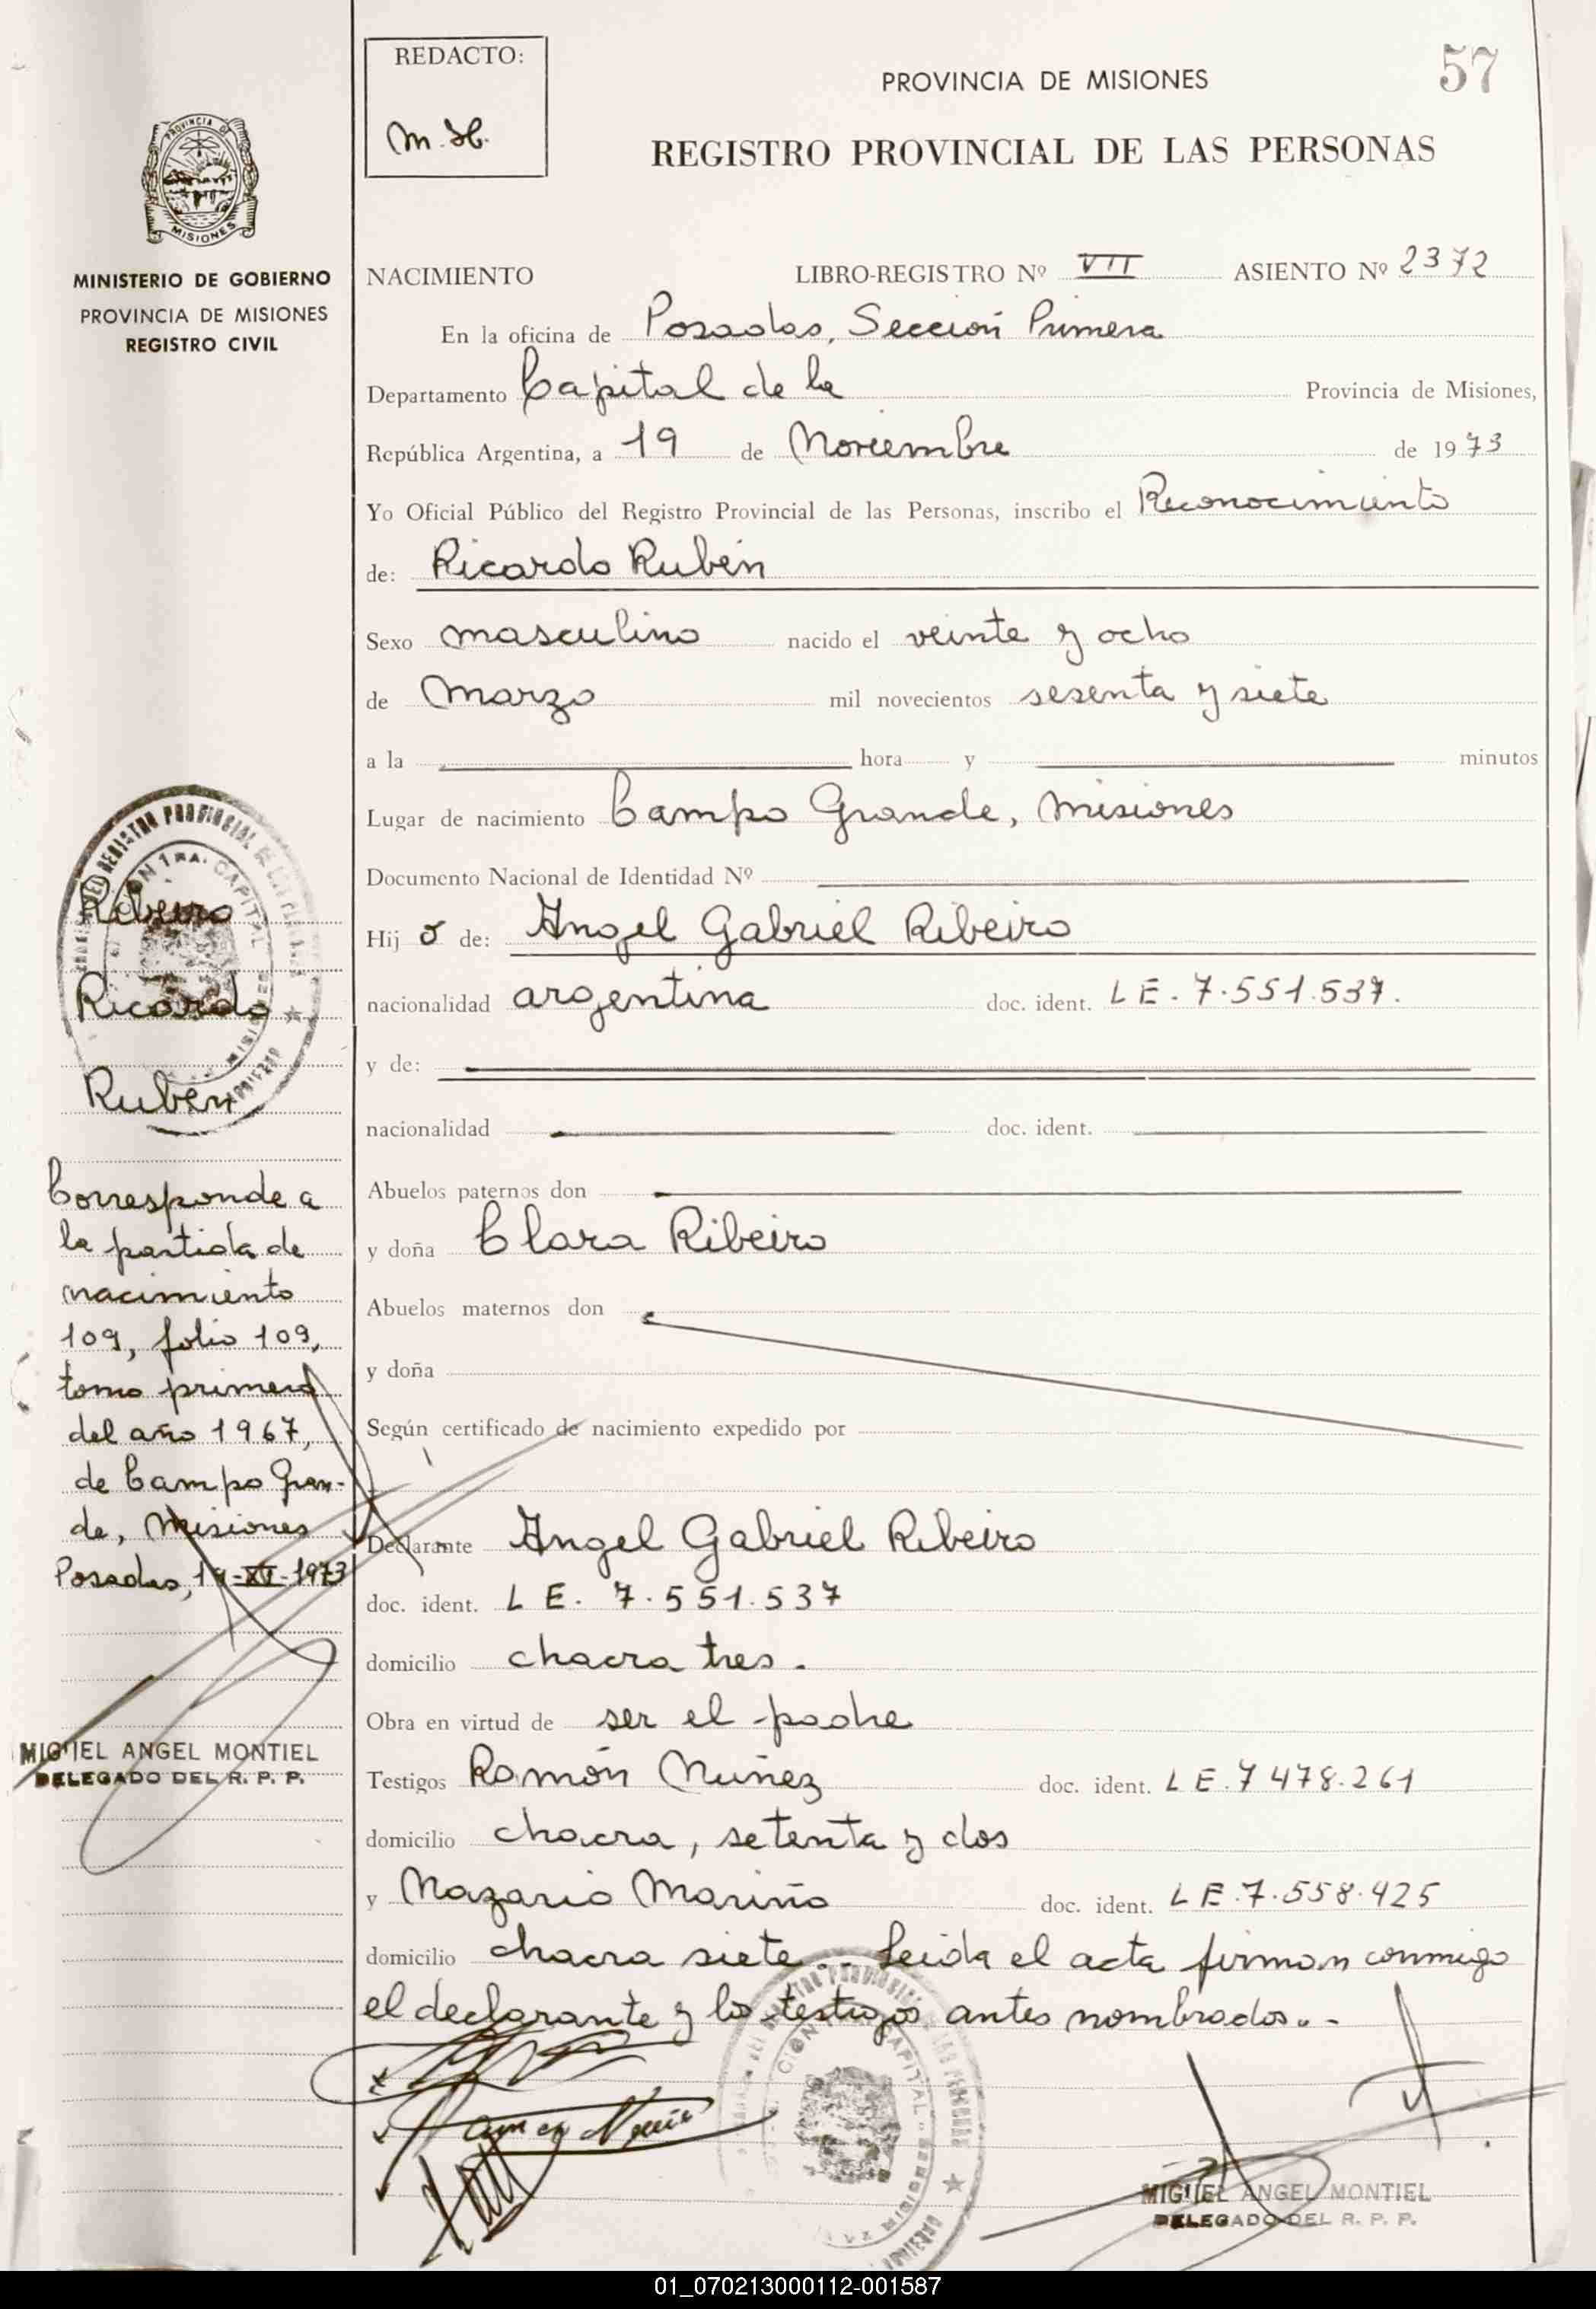 REDACTO:
M. H.
57
PROVINCIA DE MISIONES
REGISTRO PROVINCIAL DE LAS PERSONAS
PROVINCIA DE
MISIONES
MINISTERIO DE GOBIERNO
PROVINCIA DE MISIONES
REGISTRO CIVIL
NACIMIENTO LIBRO-REGISTRO Nº VII ASIENTO Nº 2372
En la oficina de Posadas, Sección Primera
Departamento Capital de la Provincia de Misiones,
República Argentina, a 19 de Noviembre de 1973
Yo Oficial Público del Registro Provincial de las Personas, inscribo el Reconocimiento
de: Ricardo Rubén
Sexo masculino nacido el veinte y ocho
de Marzo mil novecientos sesenta y siete
a la hora y minutos
Lugar de nacimiento Campo Grande, Misiones
Documento Nacional de Identidad Nº
Hijo de: Angel Gabriel Ribeiro
nacionalidad argentina doc. ident. LE. 7.551.537.
y de:
nacionalidad doc. ident.
Abuelos paternos don
y doña Clara Ribeiro
Abuelos maternos don
y doña
Según certificado de nacimiento expedido por
Declarante Angel Gabriel Ribeiro
doc. ident. LE. 7.551.537
domicilio chacra tres.
Obra en virtud de ser el padre
Testigos Ramón Nuñez doc. ident. LE. 7478.261
domicilio chacra, setenta y dos
y Nazario Mariño doc. ident. LE. 7.558.425
domicilio chacra siete. Leida el acta firman conmigo
el declarante y los testigos antes nombrados.-
MIGUEL ANGEL MONTIEL
DELEGADO DEL R. P. P.
Ribeiro
Ricardo
Rubén
Corresponde a
la partida de
nacimiento
109, folio 109,
tomo primero
del año 1967,
de Campo Gran-
de, Misiones
Posadas, 19-XI-1973
MIGUEL ANGEL MONTIEL
DELEGADO DEL R. P. P.
01_070213000112-001587